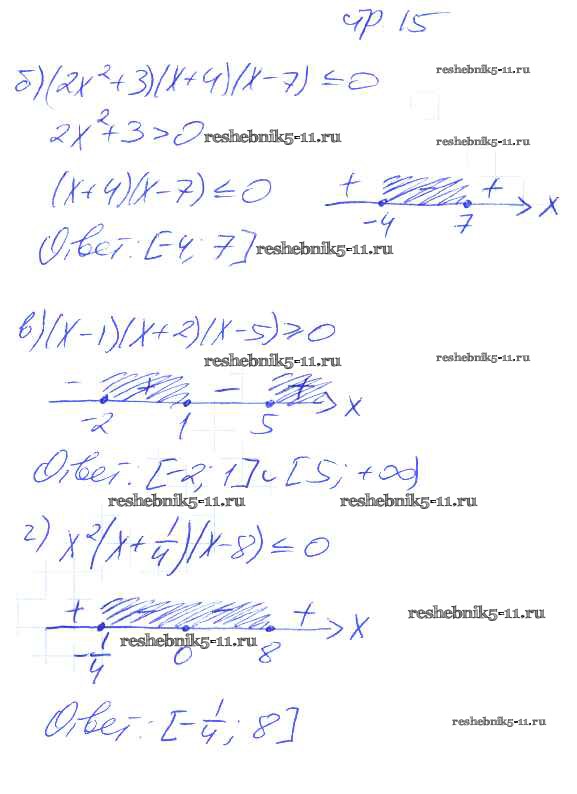 стр. 15
reshebnik5-11.ru
б) (2x²+3)(x+4)(x-7) ≤ 0
2x²+3>0 reshebnik5-11.ru reshebnik5-11.ru
(x+4)(x-7) ≤ 0 + - + -4 7 x
Ответ: [-4; 7] reshebnik5-11.ru
в) (x-1)(x+2)(x-5) ≥ 0
reshebnik5-11.ru reshebnik5-11.ru
- + - +
-2 1 5 x
Ответ: [-2; 1] ∪ [5; +∞)
reshebnik5-11.ru reshebnik5-11.ru
г) x²(x+1/4)(x-8) ≤ 0
+ - - + x reshebnik5-11.ru
reshebnik5-11.ru
-1/4 0 8
Ответ: [-1/4; 8] reshebnik5-11.ru